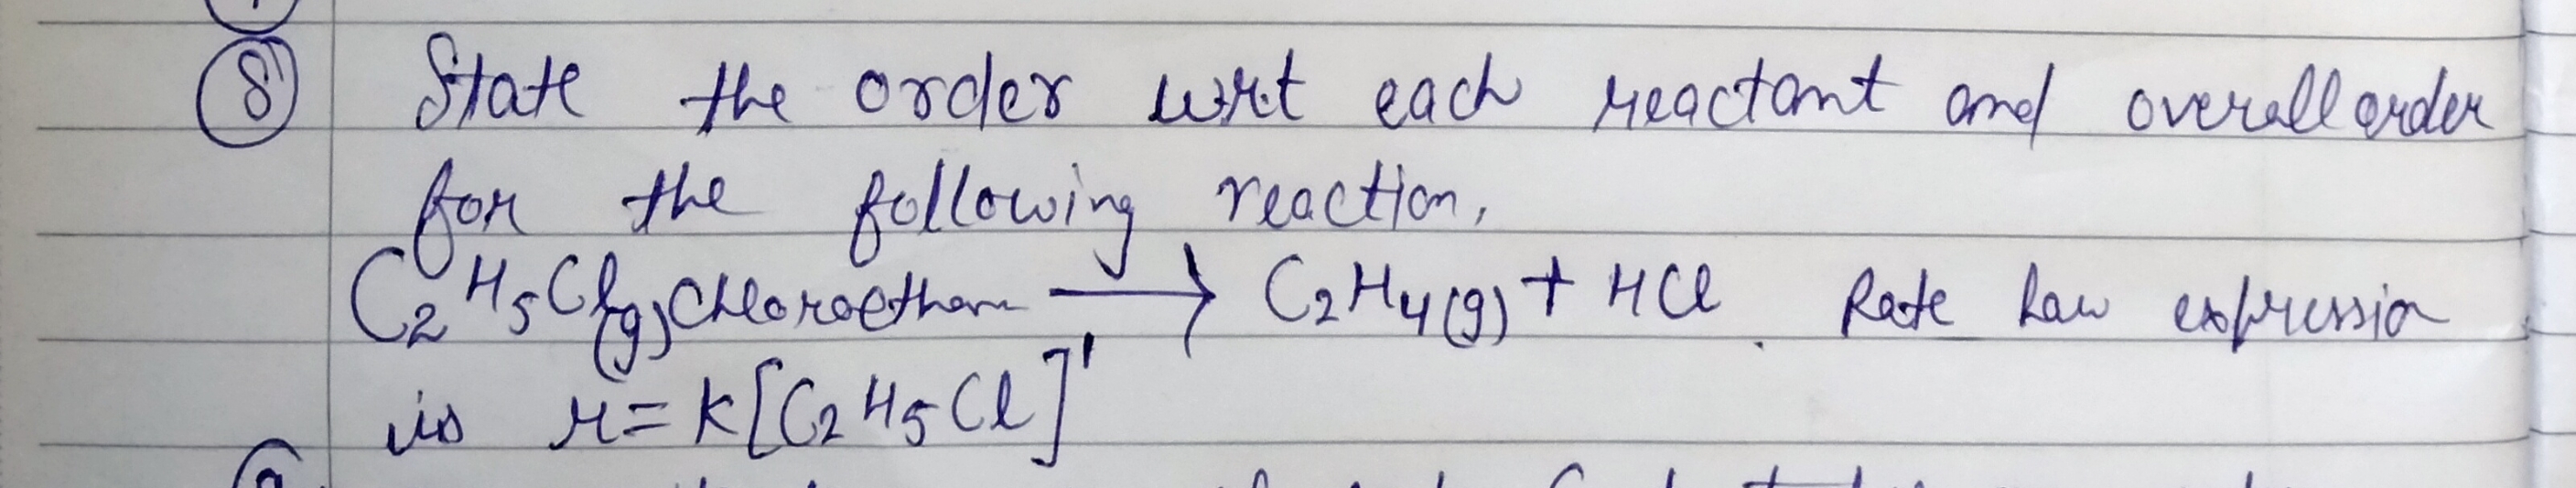 ⑧ State the order wrt each reactant and overall order
for the following reaction,
C₂H₅Cl(g) Chloroethan ⟶ C₂H₄(g) + HCl. Rate Law expression
is r = K[C₂H₅Cl]¹